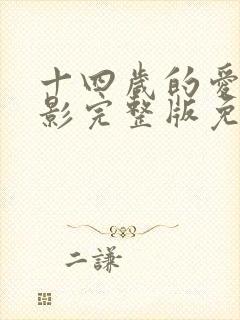 十四歲的愛
影完整版免
二謙